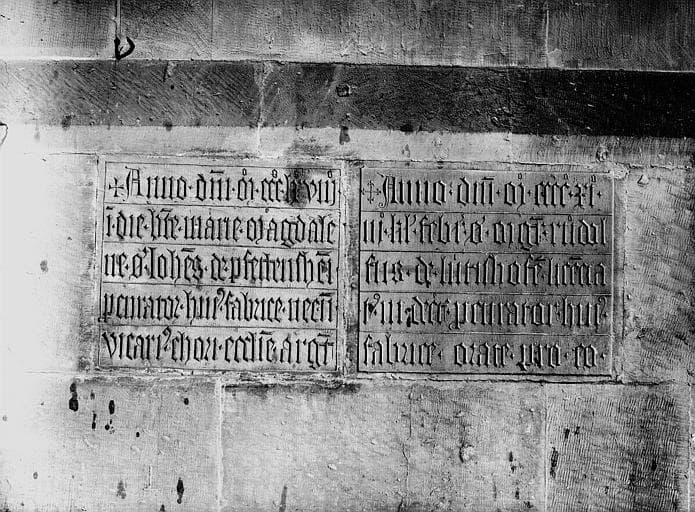 ✝ Anno · dn̄i · m̊ · cccͨ lͦ viiijͦ
ī · die · bt̄e · marie · magdale
ne · ꝋ · Joħes · de · pfettensħei
ꝓcurator · huiꝰ · fabrice · necn̄
vicariꝰ · chori · ecclīe · argn̄
✝ Anno · dn̄i · m̊ · ccccͦ · xiͦ
iijͦ · kl̄ · febrͥ · ꝋ · mgr̄ · rudol
fus · de · lutishofē · licēcia
tꝰ · in · decͬ · ꝓcurator · huiꝰ
fabrice · orate · pro · eo ·